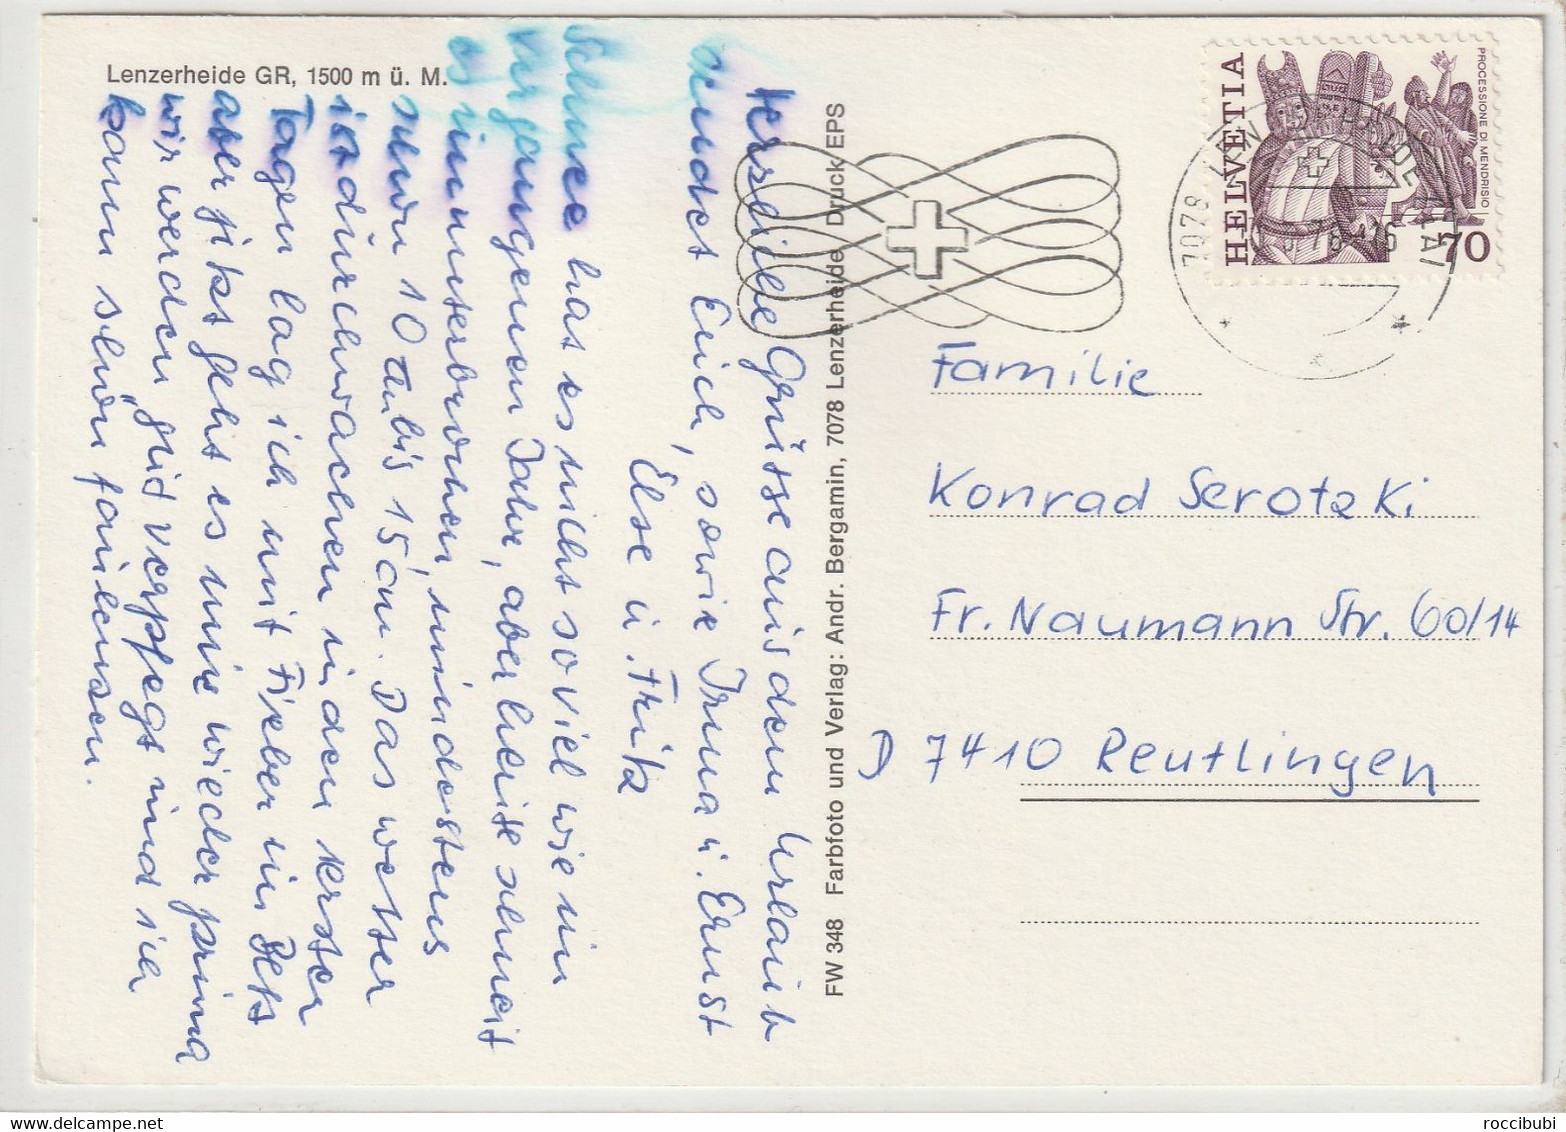 Lenzerheide GR, 1500 m ü. M.
Herzliche Grüsse aus dem Urlaub
sendet Euch, sowie Irma u. Ernst
Else u. Fritz
Schnee hat es nicht so viel wie im
vergangenen Jahr, aber heute schneit
es ununterbrochen, mindestens
schon 10 cm bis 15 cm. Das Wetter
ist durchwachsen in den ersten
Tagen lag ich mit Fieber im Bett
aber jetzt geht es mir wieder prima
wir werden „gut verpflegt und ich
kann schön faulenzen.
FW 348 Farbfoto und Verlag: Andr. Bergamin, 7078 Lenzerheide Druck EPS
HELVETIA
PROCESSIONE DI MENDRISIO
70
7078
Familie
Konrad Serotzki
Fr. Naumann Str. 60/14
D 7410 Reutlingen
roccibubi